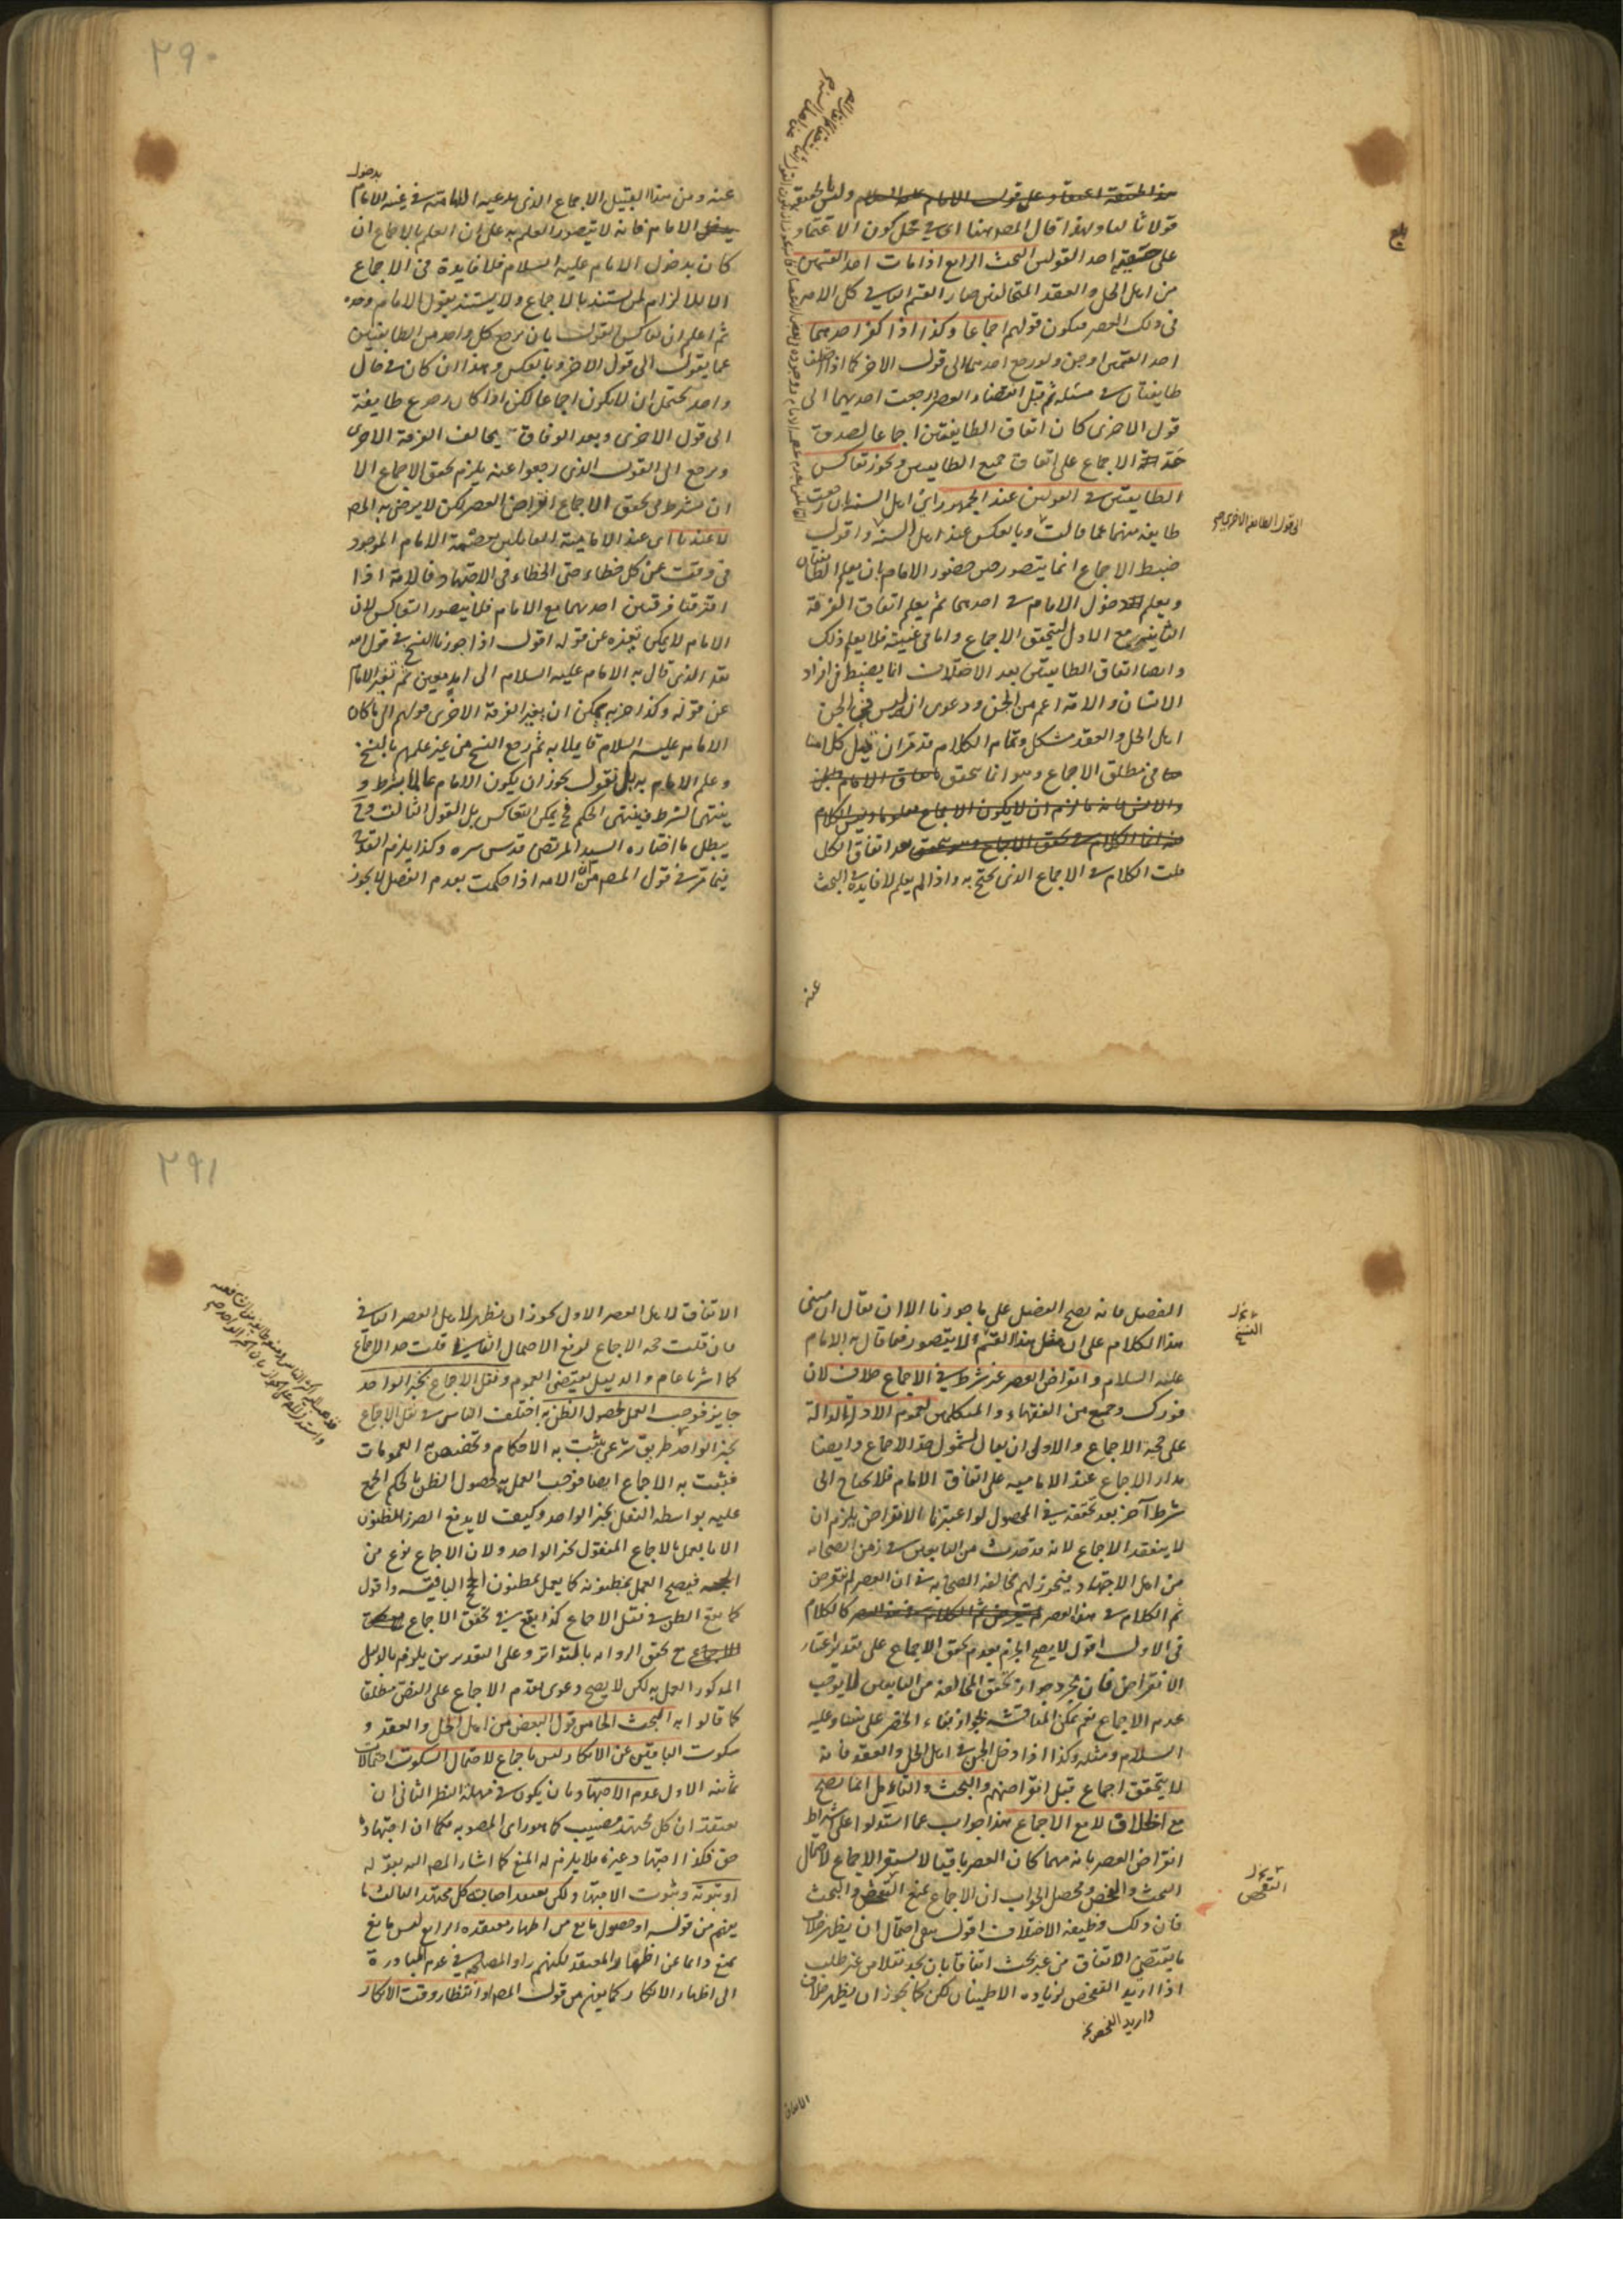 ٢٩٠
هذا الحقيقة اعتقاد على قول الامام عليه السلام وليس بالحقيقة
قولا ثالثا ولهذا قال المص هنا اى فى محل كون الاعتماد
على حقيقة احد القولين البحث الرابع اذا مات احد القسمين
من اهل الحل والعقد المتخالفين صار القسم الباقى كل الامة
فى ذلك العصر فيكون قولهم اجماعا وكذا اذا كفر احدهما
احد القسمين او جن ولو رجع احدهما الى قول الاخر كما اذا اختلف
طايفتان فى مسئلة ثم قبل انقضاء العصر رجعت احديهما الى
قول الاخرى كان اتفاق الطايفتين اجماعا لصدق
حد الاجماع على اتفاق جميع الطايفتين ويجوز تعاكس
الطايفتين فى القولين عند الجمهور اى اهل السنة بان رجعت
طايفة منهما عما قالت وبالعكس عند اهل السنة واقول
الى قول الطايفة الاخرى صح
ضبط الاجماع انما يتصور حين حضور الامام بان يعلم الطايفتان
ويعلم دخول الامام فى احدهما ثم يعلم اتفاق الفرقة
الثانية مع الاول ليتحقق الاجماع واما فى غيبته فلا يعلم ذلك
وايضا اتفاق الطايفتين بعد الاختلاف انما يضبط فى افراد
الانسان والامة اعم من الجن ودعوى ان ليس فى الجن
اهل الحل والعقد مشكل وتمام الكلام
فى مطلق الاجماع وهو انما يتحقق باتفاق الامام
والانس فانه يلزم ان لا يكون الاجماع معلوما وليس الكلام
هذا انما الكلام فى تحقق الاجماع بعد اتفاق الكل
قلت الكلام فى الاجماع الذى يحتج به واذا لم يعلم لا فايدة فى البحث
عنه
بدخول
عنه ومن هذا القبيل الاجماع الذى يدعيه الامامية فى غيبة الامام
الامام فانه لا يتصور العلم به على ان العلم بالاجماع ان
كان بدخول الامام عليه السلام فلا فايدة فى الاجماع
الا بالالزام لمن يستند بالاجماع ولا يستند بقول الامام وحده
ثم اعلم ان تعاكس القول بان يرجع كل واحد من الطايفتين
عما يقول الى قول الاخر وبالعكس وهذا ان كان فى حال
واحد يحتمل ان لا يكون اجماعا لكن اذا كان رجوع طايفة
الى قول الاخرى وبعد الوفاق يخالف الفرقة الاخرى
ويرجع الى القول الذى رجعوا عنه يلزم تحقق الاجماع الا
ان يشترط فى تحقق الاجماع انقراض العصر لكن لا يرضى به المص
لا عندنا اى عند الامامية القايلين بعصمة الامام الموجود
فى كل وقت عن كل خطاء حتى الخطاء فى الاجتهاد فالامة اذا
افترقتا فرقتين احديهما مع الامام فلا يتصور التعاكس لان
الامام لا يمكن تغيره عن قوله اقول اذا جوزنا النسخ فى قول الله
بعد الذى قال به الامام عليه السلام الى امد معين ثم تغير الامام
عن قوله وكذا حزبه يمكن ان يغير الفرقة الاخرى قولهم الى ما كان
الامام عليه السلام قايلا به ثم رفع النسخ من غير علمهم بالنسخ
وعلم الامام به بل نقول يجوز ان يكون الامام عالما بشرط و
ينتهى الشرط فينتهى الحكم فح يمكن التعاكس بل القول الثالث وح
يبطل ما اختاره السيد المرتضى قدس سره وكذا يلزم القدح
فيما مر فى قول المص من ان الامة اذا حكمت بعدم الفصل لا يجوز
٢٩١
الفصل فانه يصح الفصل على ما جوزنا الا ان يقال ان مبنى
هذا الكلام على ان مثل هذا القسم لا يتصور فيما قال به الامام
عليه السلام وانقراض العصر غير شرط فى الاجماع خلاف لابن
فورك وجمع من الفقهاء والمتكلمين لعموم الادلة الدالة
على حجية الاجماع والاولى ان يقال لشمول حد الاجماع وايضا
مدار الاجماع عند الامامية على اتفاق الامام فلا يحتاج الى
شرط آخر بعد تحققه فى المحصول لو اعتبرنا الانقراض يلزم ان
لا ينعقد الاجماع لانه قد حدث من التابعين فى زمن الصحابة
من اهل الاجتهاد فيجوز لهم مخالفة الصحابة فى ان العصر لم ينقرض
ثم الكلام فى هذا العصر كالكلام
فى الاول اقول لا يصح الجزم بعدم تحقق الاجماع على تقدير اعتبار
الانقراض فان مجرد جواز تحقق المخالفة من التابعين لا يوجب
عدم الاجماع نعم يمكن المناقشة بجواز بقاء الخضر على نبينا وعليه
السلام ومثله وكذا اذا دخل الجن فى اهل الحل والعقد فانه
لا يتحقق اجماع قبل انقراضهم والبحث والتأمل انما يصح
مع الخلاف لا مع الاجماع هذا جواب عما استدلوا على اشتراط
انقراض العصر بانه مهما كان العصر باقيا لا يستقر الاجماع لاحتمال
البحث والفحص ومحصل الجواب ان الاجماع يمنع التفحص والبحث
فان ذلك وظيفة الاختلاف اقول يبقى احتمال ان يظهر خلاف
ما يقتضى الاتفاق من غير بحث اتفاقا بان يجد نقلا من غير طلب
اذا اريد الفحص لزيادة الاطمينان لكن كما يجوز ان يظهر خلاف
واريد الفحص
الاتفاق
الاتفاق لاهل العصر الاول يجوز ان يظهر لاهل العصر الثانى
فان قلت حجية الاجماع لدفع الاحتمال الثانى قلت حد الاجماع
كما اشرنا عام والدليل يقتضى العموم ونقل الاجماع بخبر الواحد
جايز فوجب العمل لحصول الظن به اختلف الناس فى نقل الاجماع
بخبر الواحد طريق شرعى يثبت به الاحكام وتخصيص العمومات
فيثبت به الاجماع ايضا فوجب العمل به لحصول الظن بالحكم المجمع
عليه بواسطة النقل بخبر الواحد وكيف لا يدفع الضرر المظنون
الا بالعمل بالاجماع المنقول بخبر الواحد ولان الاجماع نوع من
الحجة فيصح العمل بمظنونه كما يعمل بمظنون الحجج الباقية واقول
كما يقع الظن فى نقل الاجماع كذا يقع فى تحقق الاجماع
ح تحقق الرواية بالمتواتر وعلى التقديرين يلزم بالدليل
المذكور العمل به لكن لا يصح دعوى تقدم الاجماع على النص مطلقا
كما قالوا به البحث الخامس قول البعض من اهل الحل والعقد و
سكوت الباقين عن الانكار ليس باجماع لاحتمال السكوت احتمالات
ثمانية الاول عدم الاجتهاد بان يكون فى مهلة النظر الثانى ان
يعتقد ان كل مجتهد مصيب كما هو راى المصوبة فكما ان اجتهاده
حق فكذا اجتهاد غيره فلا يلزم له المنع كما اشار المص اليه بقوله
او ثبوته وثبوت الاجتهاد ولكن يعتقد اصابة كل مجتهد الثالث ما
يفهم من قوله او حصول مانع من اظهار معتقده الرابع ليس مانع
يمنع دائما عن اظهار المعتقد لكنهم راو المصلحة فى عدم المبادرة
الى اظهار الانكار كما يفهم من قول المص او انتظار وقت الانكار